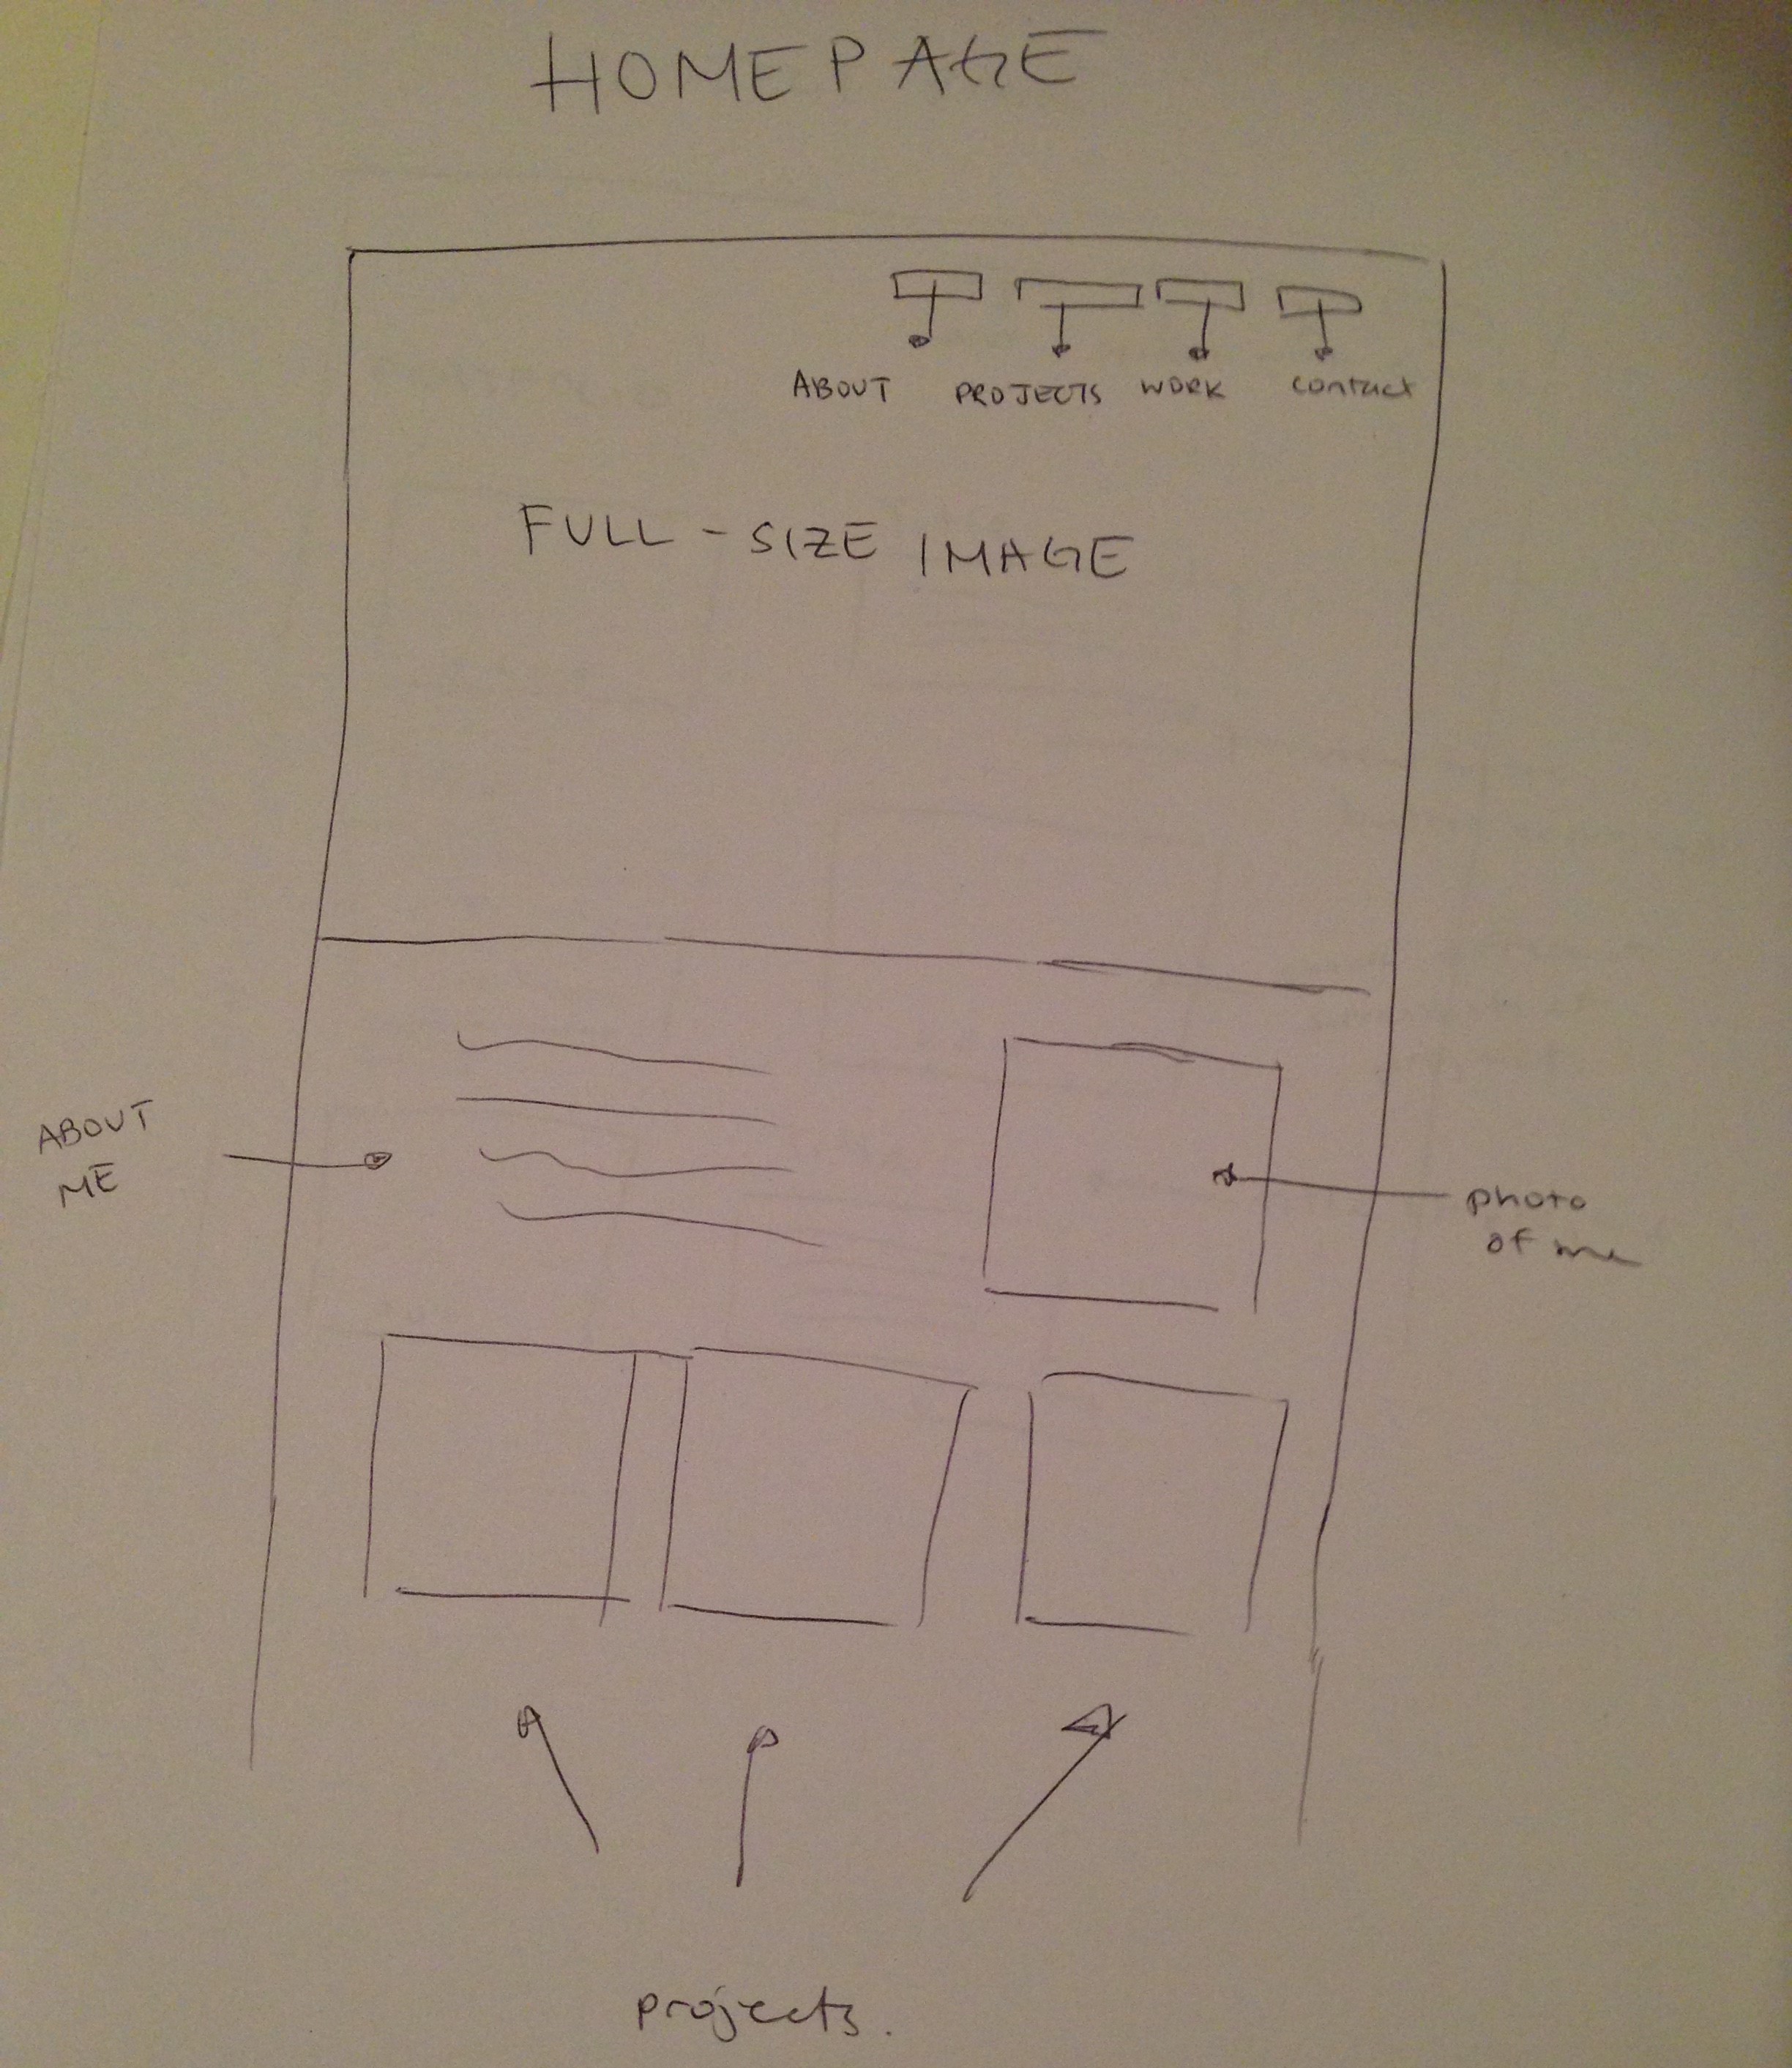 HOMEPAGE
ABOUT PROJECTS WORK contact
FULL-SIZE IMAGE
ABOUT
ME
photo
of me
projects.